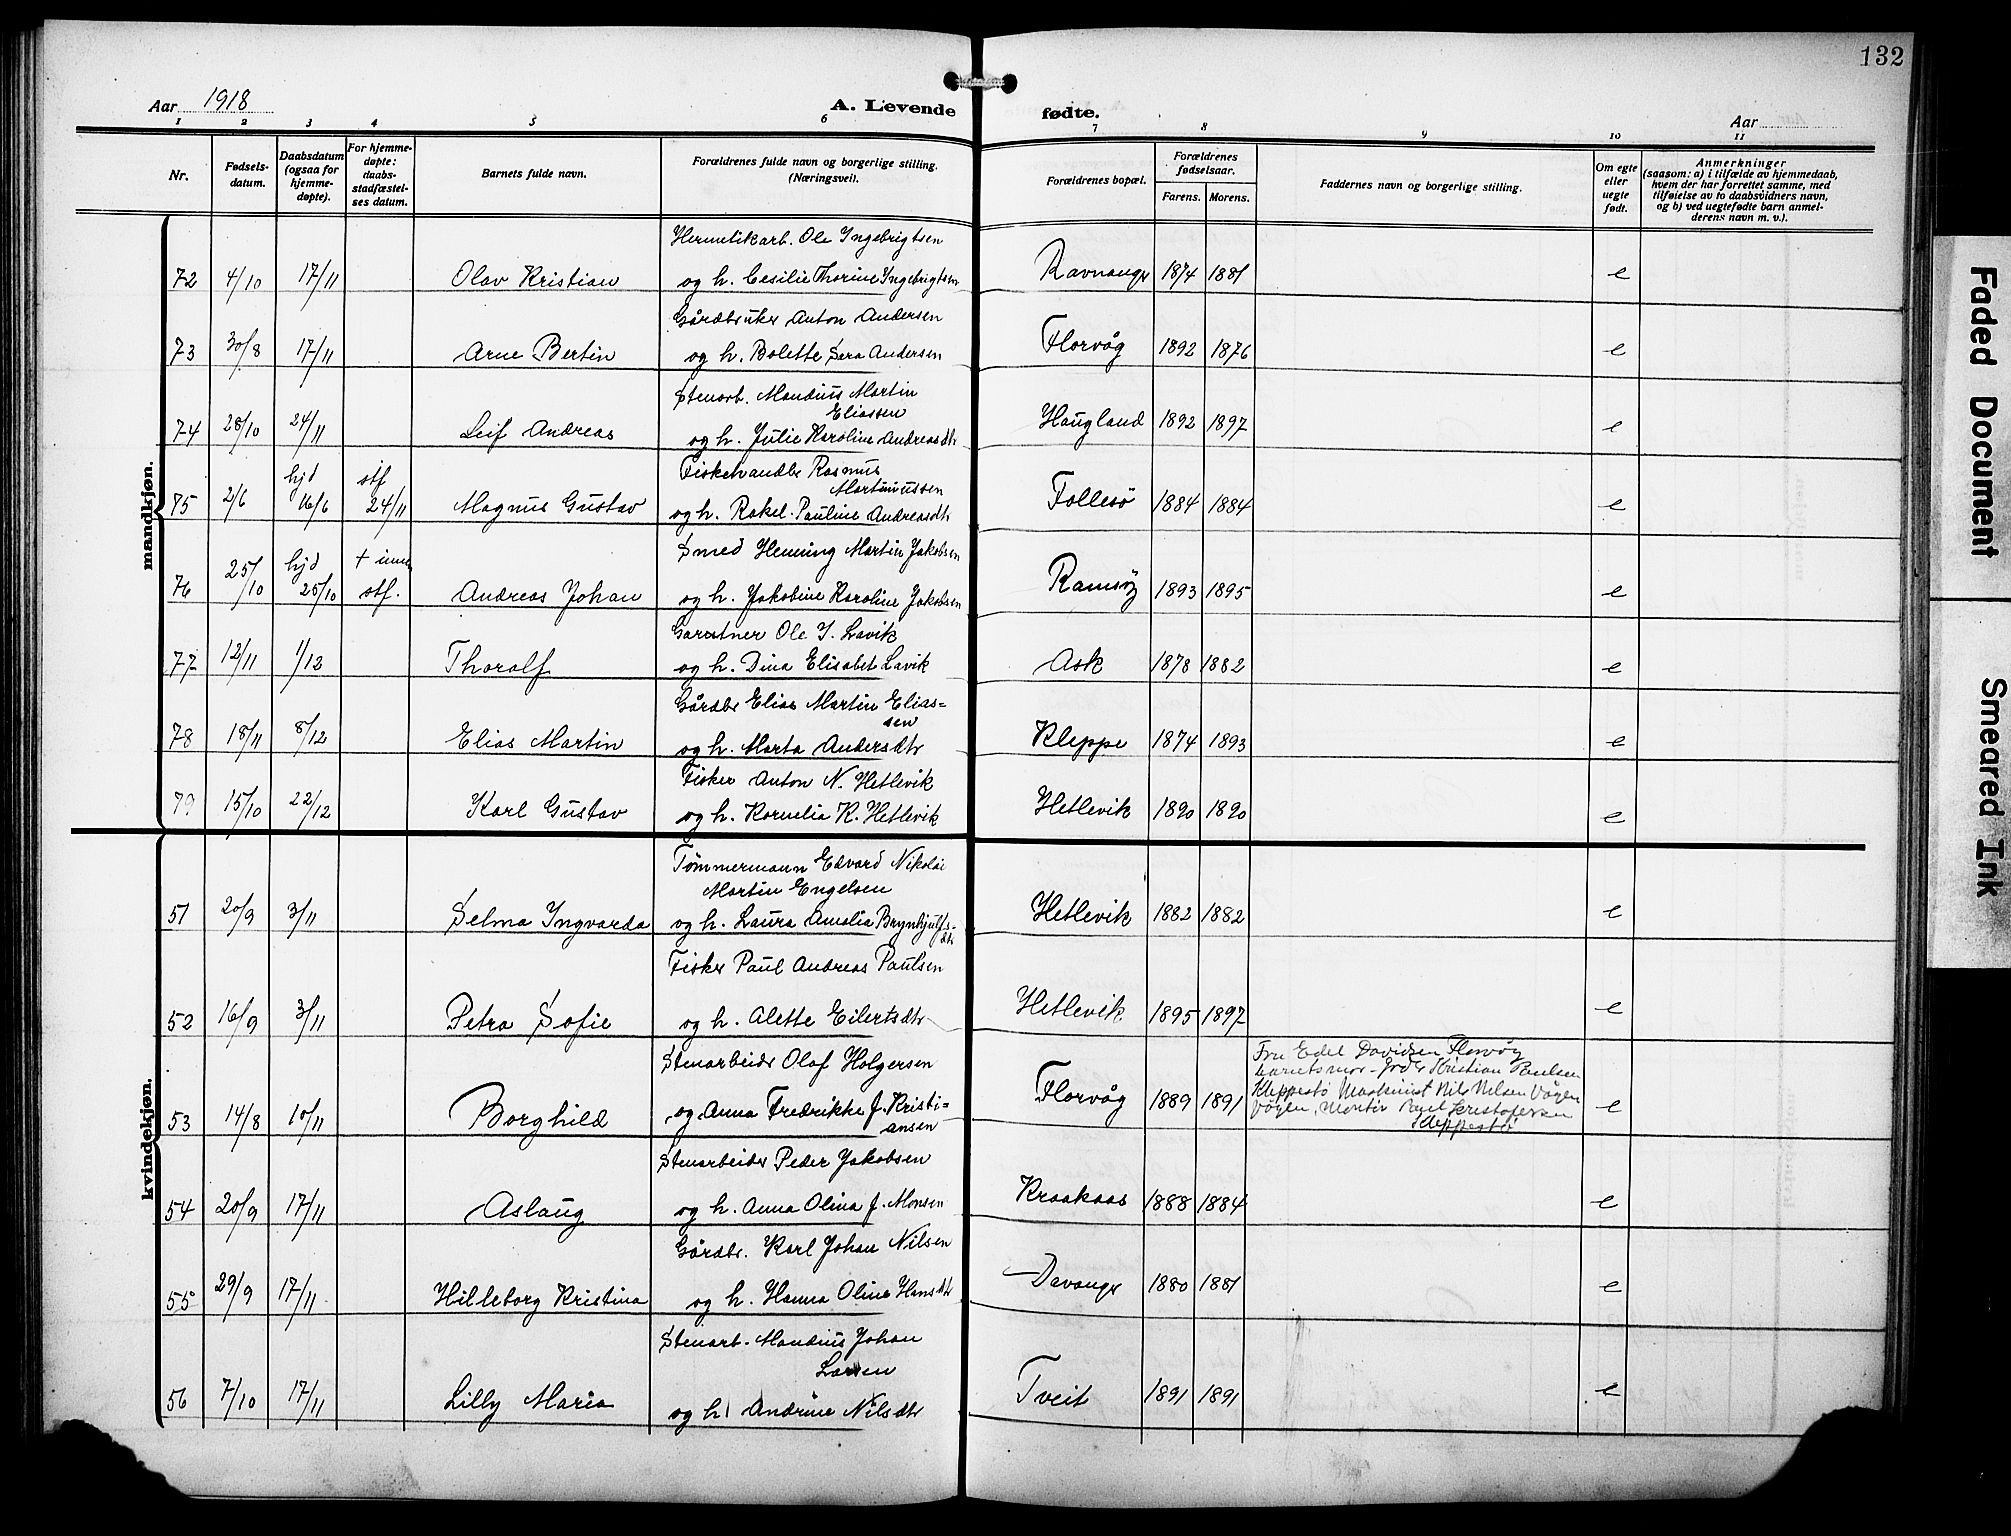 132
Aar 1918
A. Levende fødte.
Aar
1 2 3 4 5 6 7 8 9 10 11
Nr.
Fødsels-
datum.
Daabsdatum
(ogsaa for
hjemme-
døpte).
For hjemme-
døpte:
daabs-
stadfæstel-
ses datum.
Barnets fulde navn.
Forældrenes fulde navn og borgerlige stilling.
(Næringsvei).
Forældrenes bopæl.
Forældrenes
fødselsaar.
Farens. Morens.
Faddernes navn og borgerlige stilling.
Om egte
eller
uegte
født.
Anmerkninger
(saasom: a) i tilfælde av hjemmedaab,
hvem der har forrettet samme, med
tilføielse av to daabsvidners navn,
og b) ved uegtefødte barn anmel-
derens navn m. v.).
mandkjøn.
Hermetikarb. Ole Ingebrigtsen
72 4/10 17/11 Olav Kristian og h. Cesilie Thorine Ingebrigtsen Ravnanger 1874 1881 e
Gårdbruker Anton Andersen
73 30/8 17/11 Arne Bertin og h. Bolette Sera Andersen Florvåg 1892 1876 e
Stenarb. Mandius Martin
Eliassen
74 28/10 24/11 Leif Andreas og h. Julie Karoline Andreasdtr Haugland 1892 1897 e
hjd stf Fiskehandler Rasmus
Martinussen
75 2/6 16/6 24/11 Magnus Gustav og h. Rakel Pauline Andreasdtr Follesö 1884 1884 e
hjd + innen Smed Henning Martin Jakobsen
76 25/10 25/10 stf. Andreas Johan og h. Jakobine Karoline Jakobsen Ramsöy 1893 1895 e
Gartner Ole J. Lavik
77 12/11 1/12 Thoralf og h. Dina Elisabet Lavik Ask 1878 1882 e
Gårdbr Elias Martin Elias=
sen
78 18/11 8/12 Elias Martin og h. Marta Andersdtr Kleppe 1874 1893 e
Fisker Anton N. Hetlevik
79 15/10 22/12 Karl Gustav og h. Kornelia K. Hetlevik Hetlevik 1890 1890 e
kvindekjøn.
Tömmermann Edvard Nikolai
Martin Engelsen
51 20/9 3/11 Selma Ingvarda og h. Laura Amalia Brynhjulfs-
dtr Hetlevik 1882 1882 e
Fisker Paul Andreas Paulsen
52 16/9 3/11 Petra Sofie og h. Alette Eilertsdtr Hetlevik 1895 1897 e
Stenarbeider Olaf Holgersen
53 14/8 10/11 Borghild og Anna Fredrikke f. Kristi=
ansen Florvåg 1889 1891 e
Fru Edel Davidsen Florvåg
barnets mor - Kristian Paulsen
Kleppestö Maskinist Nils Nilsen Vågen
Vågen, Montör Paul Kristofersen
Kleppestö
Stenarbeider Peder Jakobsen
54 20/9 17/11 Aslaug og h. Anna Olina f. Monsen Kraakaas 1888 1884 e
Gårdbr. Karl Johan Nilsen
55 29/9 17/11 Hilleborg Kristina og h. Hanna Oline Hansdtr Davanger 1880 1881 e
Stenarb. Mandius Johan
Larsen
56 7/10 17/11 Lilly Maria og h. Andrine Nilsdtr Tveit 1891 1891 e
Faded Document
Smeared Ink